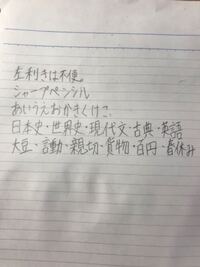 左利きは不便。
シャープペンシル
あいうえおかきくけこ
日本史・世界史・現代文・古典・英語
大豆・言動・親切・貨物・百円・春休み